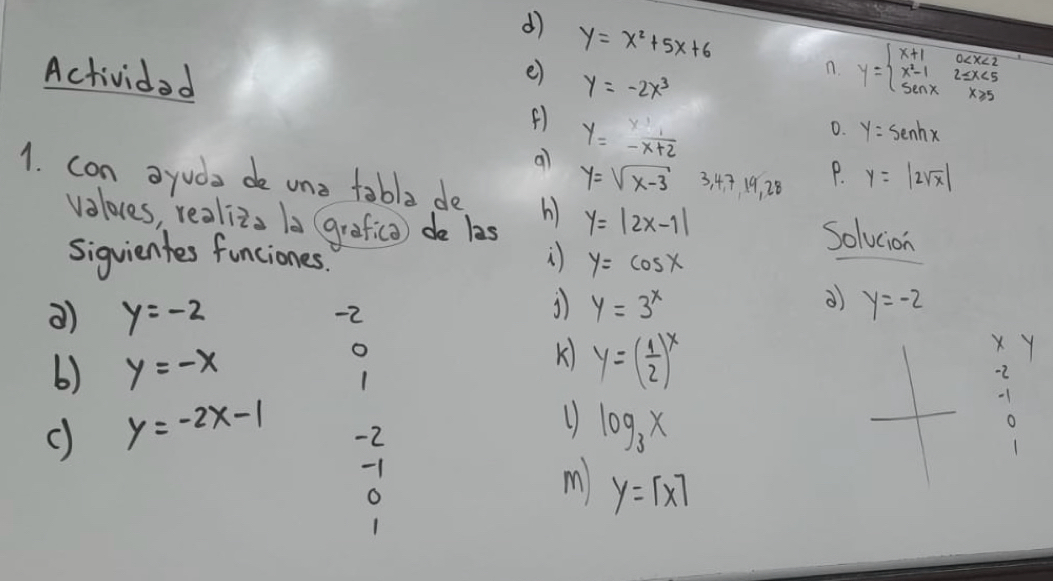 Actividad
1. Con ayuda de una tabla de
valores, realiza la grafica de las
siguientes funciones.
a) y=-2
b) y=-x
c) y=-2x-1
-2
0
1
-2
-1
0
1
d) y= x²+5x+6
e) y= -2x³
f) y= /(-x+2)
g) y= √(x-3) 3,4,7,19,28
h) y= |2x-1|
i) y= cosx
j) y= 3ˣ
k) y=(1/2)ˣ
l) log₃x
m) y=⌈x⌉
n. y={ x+1 0<x<2
x²-1 2≤x<5
Senx x≥5
o. y= Senhx
p. y= |2√x|
Solución
a) y=-2
x y
-2
-1
0
1